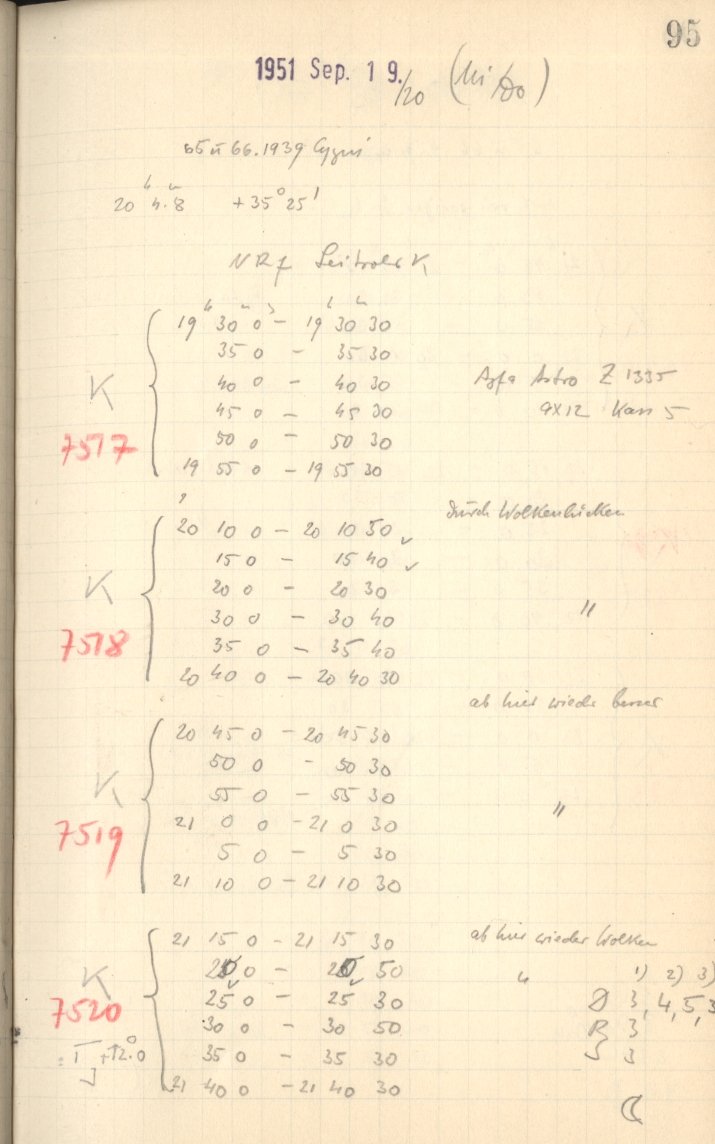 95
1951 Sep. 19./20 (Mi/Do)
65 u 66.1939 Cygni
h m
20 4.8 +35° 25'
h m s h m
19 30 0 – 19 30 30
35 0 – 35 30
40 0 – 40 30 Agfa Astro Z 1335
K 45 0 – 45 30 9X12 Kass 5
7517 50 0 – 50 30
19 55 0 – 19 55 30
durch Wolkenlücken
20 10 0 – 20 10 50 ✓
15 0 – 15 40 ✓
K 20 0 – 20 30 "
30 0 – 30 40
7518 35 0 – 35 40
20 40 0 – 20 40 30
ab hier wieder besser
20 45 0 – 20 45 30
50 0 – 50 30
K 55 0 – 55 30 "
7519 21 0 0 – 21 0 30
5 0 – 5 30
21 10 0 – 21 10 30
21 15 0 – 21 15 30 ab hier wieder Wolken
K 0 – 50 " 1) 2) 3)
7520 25 0 – 25 30 D 3, 4, 5, 3
30 0 – 30 50 R 3
+12.0 35 0 – 35 30 S 3
21 40 0 – 21 40 30